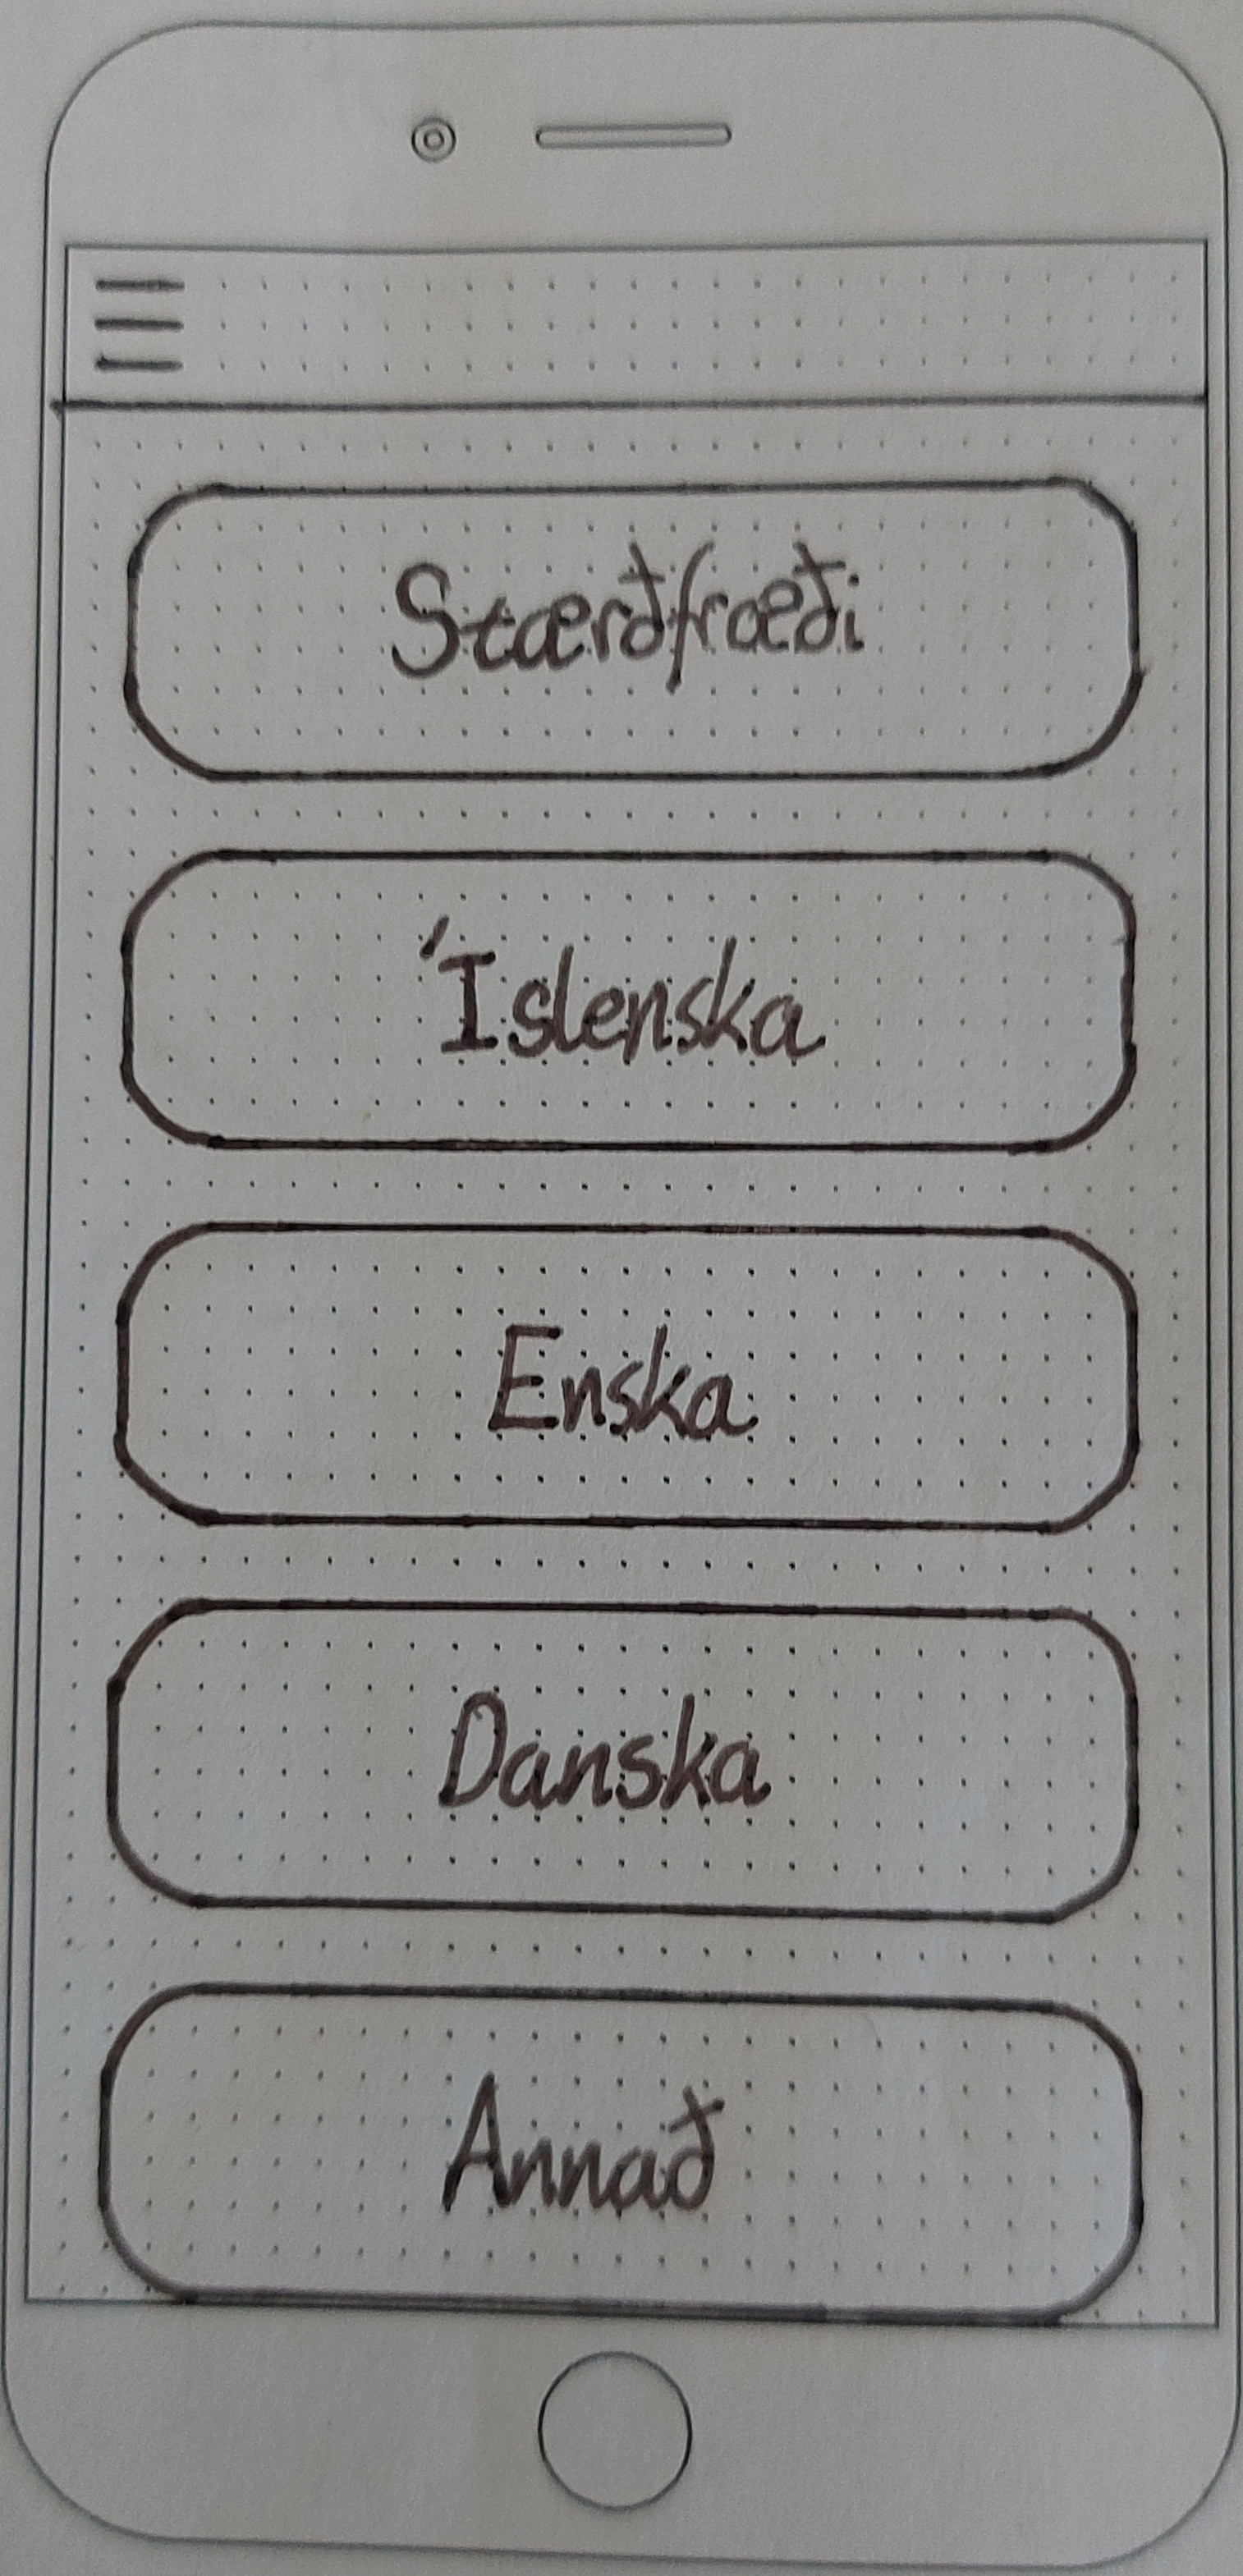 Stærðfræði
Íslenska
Enska
Danska
Annað